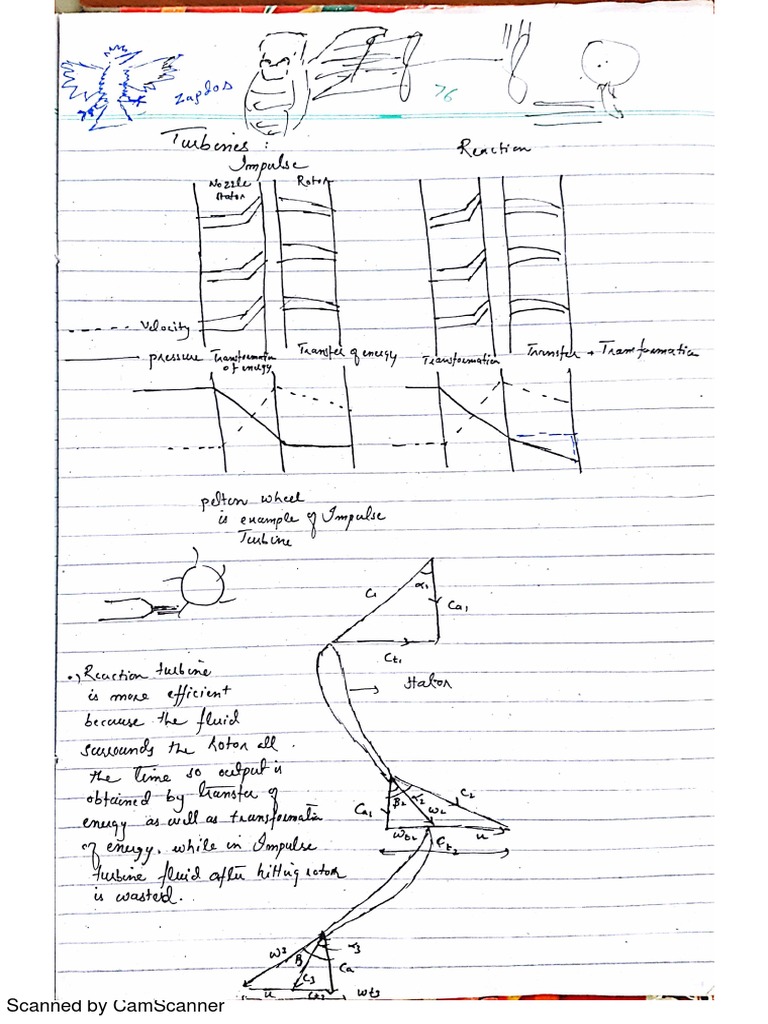 Zapdos
76
Turbines :
Impulse
Reaction
Nozzle
Stator
Rotor
Velocity
pressure
Transformation
of energy
Transfer of energy
Transformation
Transfer + Transformation
pelton wheel
is example of Impulse
Turbine
C1
α1
Ca1
Ct1
Stator
., Reaction turbine
is more efficient
because the fluid
surrounds the Rotor all
the time so output is
obtained by transfer of
energy as well as transformation
of energy. while in Impulse
turbine fluid after hitting rotor
is wasted.
Ca1
B2
α2
W2
C2
u
Ct2
W3
B
α3
Ca
C3
u
Ct3
Wt3
Scanned by CamScanner